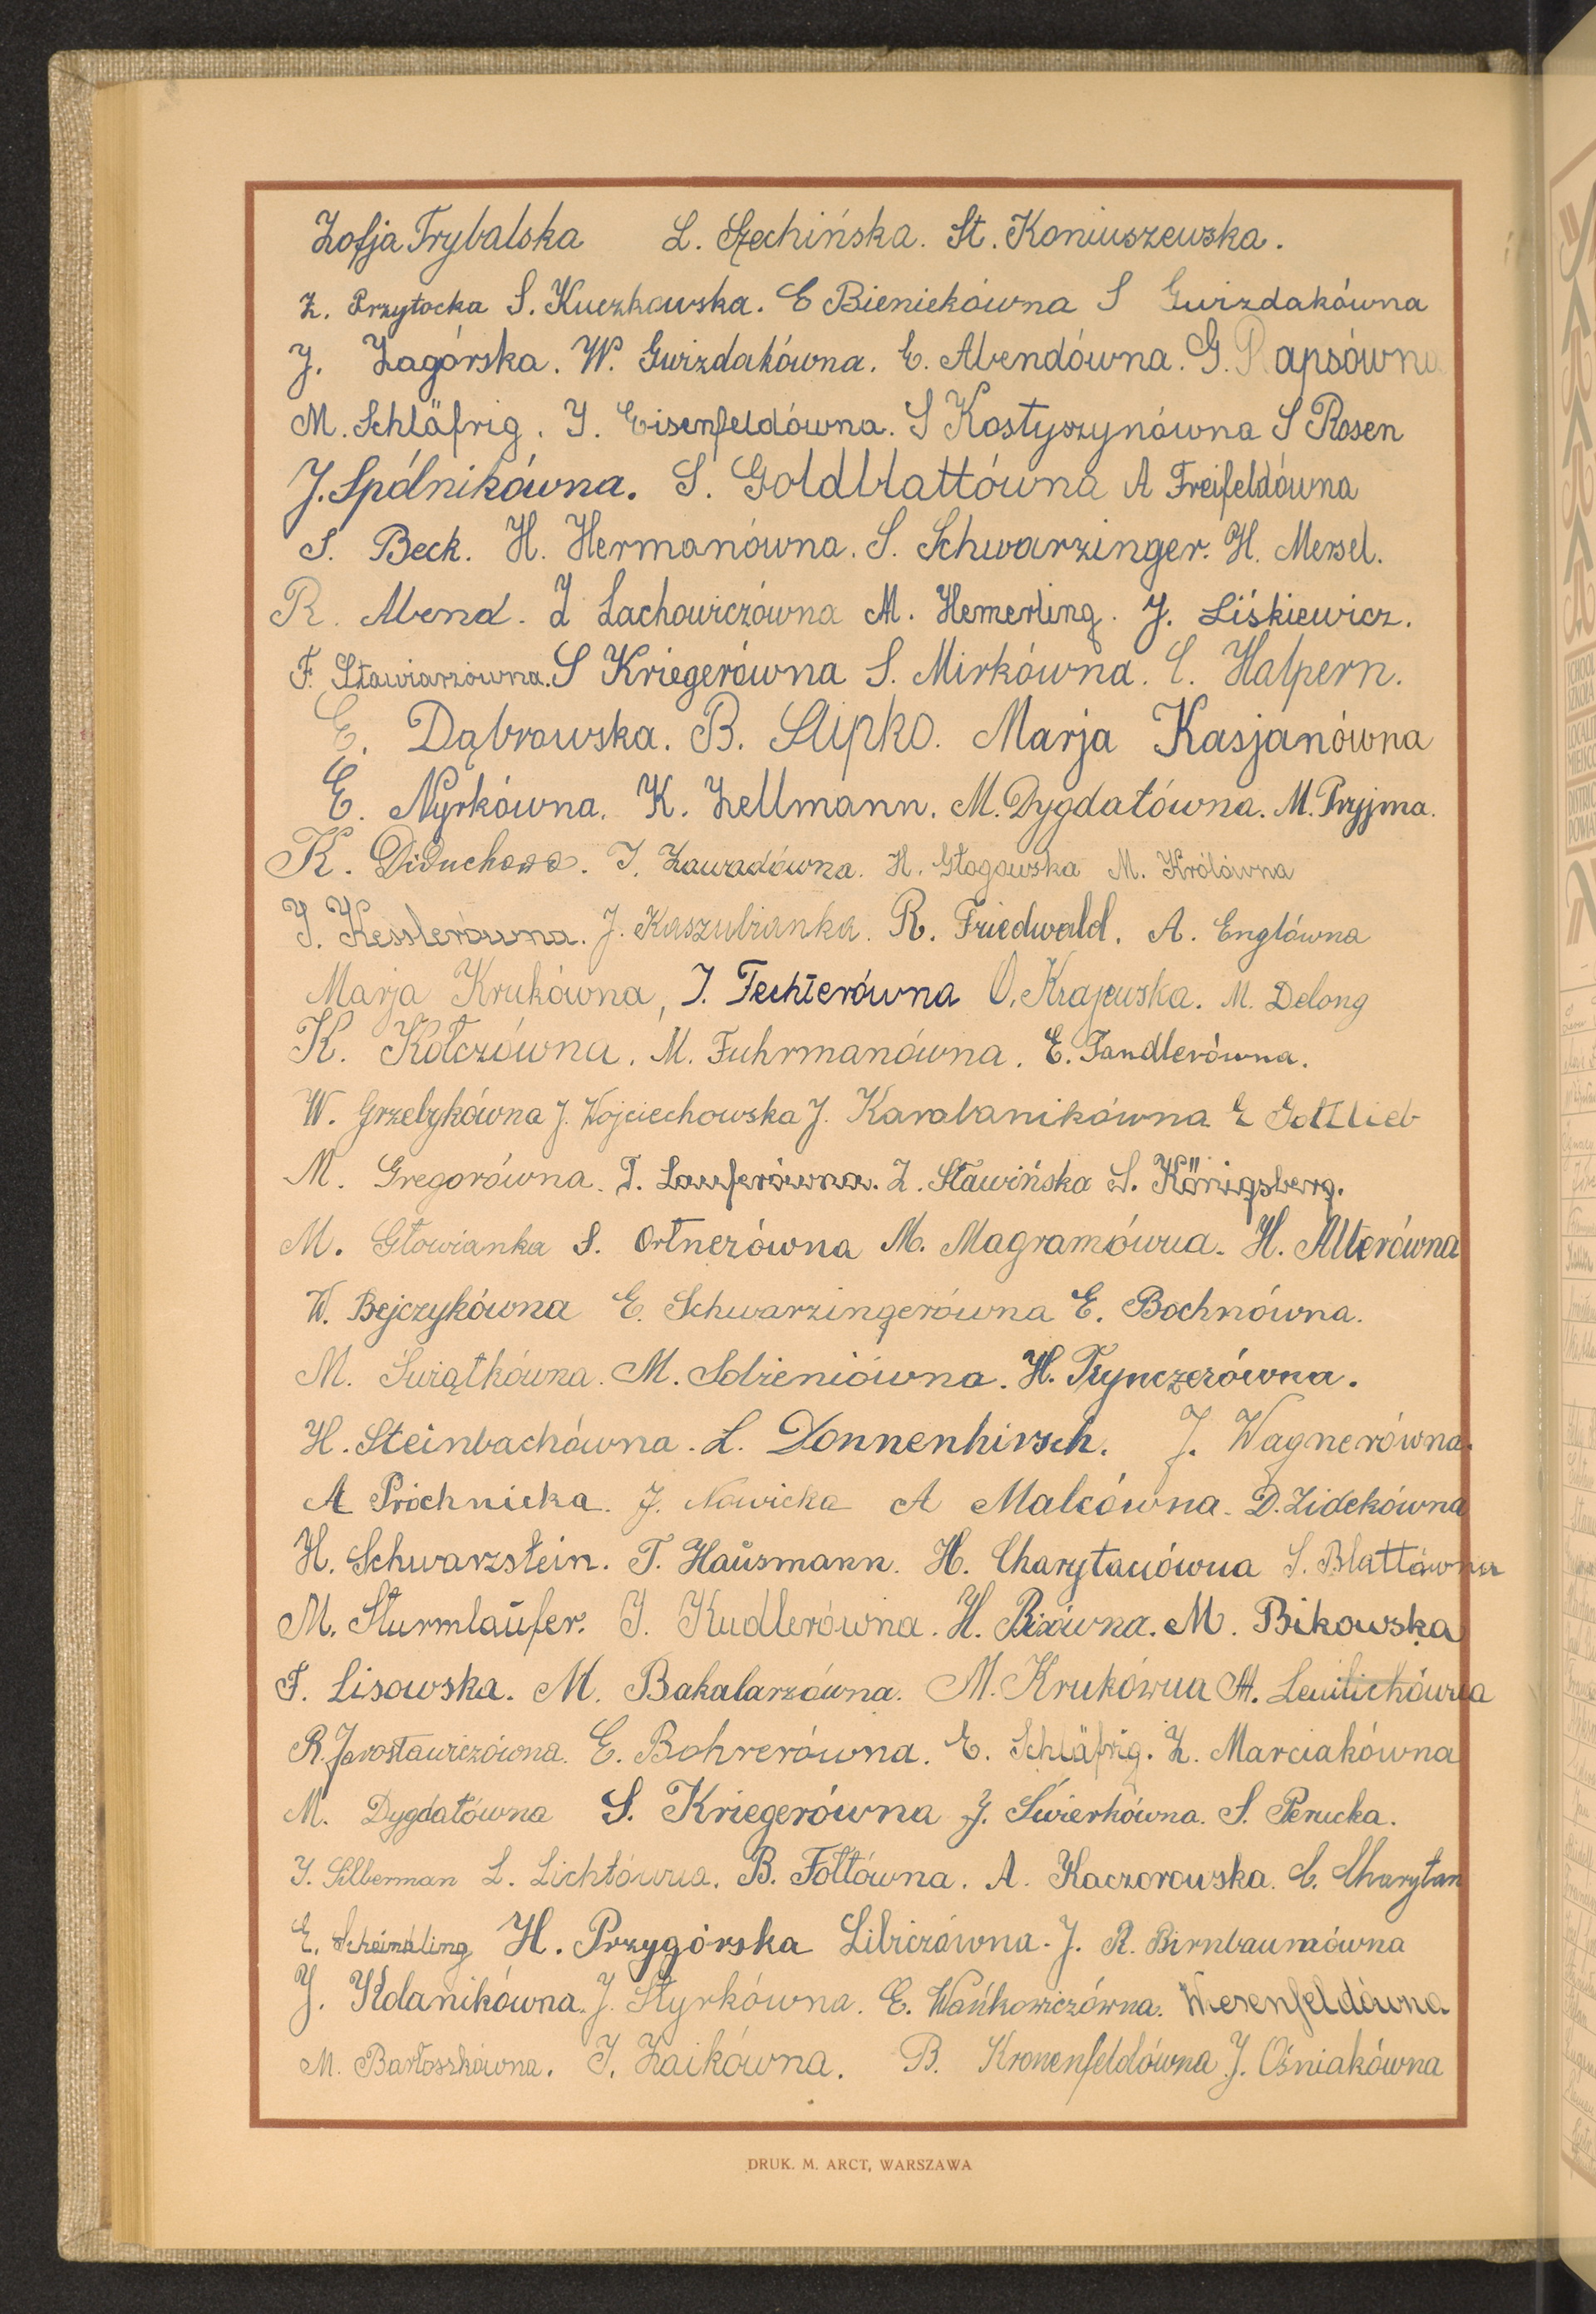 Zofja Trybalska L. Szechińska. St. Koniuszewska.
Z. Przytocka S. Kuczkowska. E Bieniekówna S Gwizdakówna
J. Zagórska. W. Gwizdakówna. E. Abendówna. G. Rapsówna
M. Schläfrig. I. Eisenfeldówna. S Kostyszynówna S Rosen
J. Spólnikówna. S. Goldblattówna A Freifeldówna
S. Beck. H. Hermanówna. S. Schwarzinger. H. Mersel.
R. Abend. Z Lachowiczówna M. Hemerling. J. Liśkiewicz.
F. Stawiarzówna. S Kriegerówna S. Mirkówna. C. Halpern.
E. Dąbrowska. B. Slipko. Marja Kasjanówna
E. Nyrkówna. K. Zellmann. M. Dygdałówna. M. Pryjma.
K. Diduchowa. J. Zawadówna. H. Głogowska M. Królówna
I. Kesslerówna. J. Kaszubianka. R. Friedwald. A. Englówna
Marja Krukówna, I. Fechterówna O. Krajewska. M. Delong
K. Kołczówna. M. Fuhrmanówna. E. Tandlerówna.
W. Grzelykówna J. Wojciechowska J. Karabanikówna E Gottlieb
M. Gregorówna. T. Lauferówna. Z. Sławińska S. Königsberg.
M. Głowianka S. Ortnerówna M. Magramówna. H. Alterówna
W. Bejczykówna E. Schwarzingerówna E. Bochnówna.
M. Świątkówna. M. Solzeniówna. H. Trynczerówna.
H. Steinbachówna. L. Donnenhirsch. J. Wagnerówna.
A Próchnicka. J. Nowicka A Malcówna. D. Zidekówna
H. Schwarzstein. T. Hausmann. H. Charytanówna S. Blattówna
M. Sturmlaufer. I. Kudlerówna. H. Bixówna. M. Bikowska
F. Lisowska. M. Bakalarzówna. M. Krukówna
R. Jarosławiczówna. E. Bohrerówna. E. Schläfrig. Z. Marciakówna
M. Dygdałówna S. Kriegerówna J. Świerkówna. S. Perucka.
I. Silberman L. Lichtówna. B. Foltówna. A. Kaczorowska. C. Charytan
E. Scheindling H. Przygórska Libiczówna. J. R. Birnbaumówna
J. Kolanikówna. J. Styrkówna. E. Wańkowiczówna. Wiesenfeldówna
M. Bartoszkówna. I. Zaikówna. B. Kronenfeldówna J. Ośniakówna
DRUK. M. ARCT, WARSZAWA